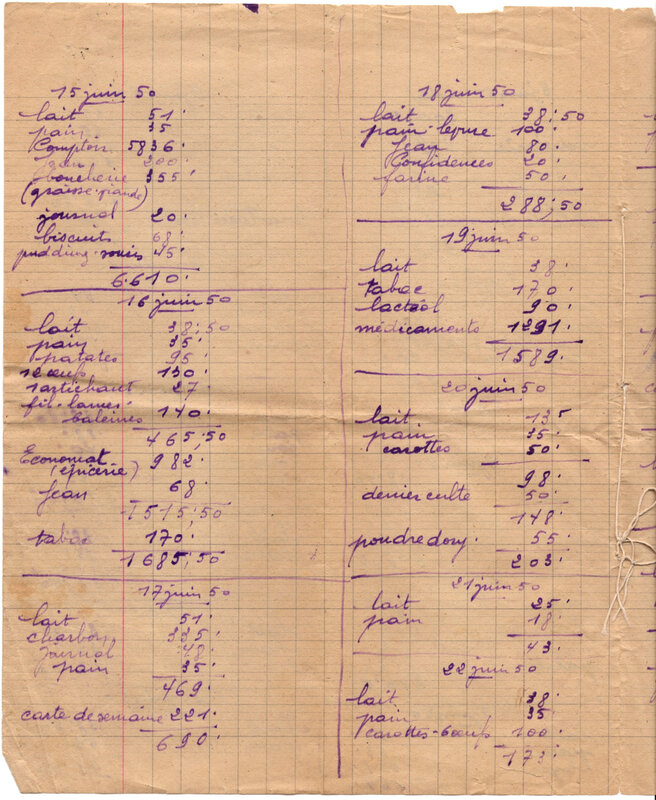 15 juin 50
lait 51.
pain 35
Comptoir 5836.
Jean 200.
boucherie 355
(graisse-viande)
journal 20.
biscuits 68.
pudding-souris 45.
6.610.
16 juin 50
lait 38;50
pain 35.
patates 95
12 œufs 130.
1 artichaut 27.
fil-lames-
baleines 140.
465;50
Economat 982.
(épicerie)
Jean 68.
1515;50
tabac 170.
1685;50
17 juin 50
lait 51.
charbon 335
Journal 48.
pain 35
469.
carte de semaine 221.
690.
18 juin 50
lait 38;50
pain-levure 100.
Jean 80.
Confidences 20.
farine 50.
288;50
19 juin 50
lait 38.
tabac 170.
lactéol 90.
médicaments 1291.
1589.
20 juin 50
lait 13
pain 35.
carottes 50.
98.
denier culte 50.
148.
poudre dory. 55
203.
21 juin 50
lait 25.
pain 18.
43.
22 juin 50
lait 38.
pain 35
carottes-6œufs 100.
173.